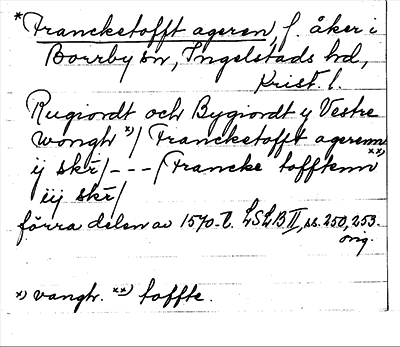 *Francketofft ageren, f. åker i
Borrby sn, Ingelstads hd,
Krist. l.
Rugiordt och Bygiordt y Vestre
wongh x)/ Francketofft agerenn
ij skr̄/---/ Francke tofftenn xx)
iij skr̄/
förra delen av 1570-t. LSLB II, ss. 250, 253.
orig.
x) vangh. xx) toffte.